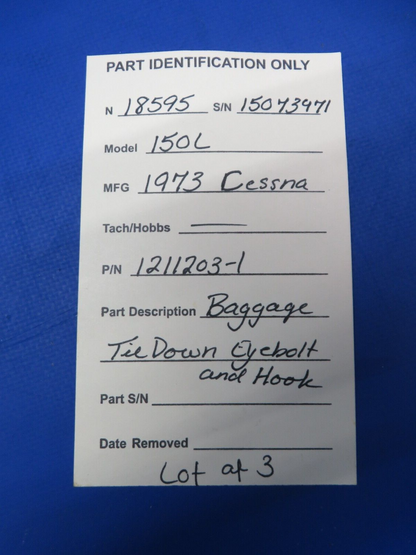 PART IDENTIFICATION ONLY
N 18595 S/N 15073471
Model 150L
MFG 1973 Cessna
Tach/Hobbs —
P/N 1211203-1
Part Description Baggage
Tie Down Eyebolt
and Hook
Part S/N
Date Removed
Lot of 3